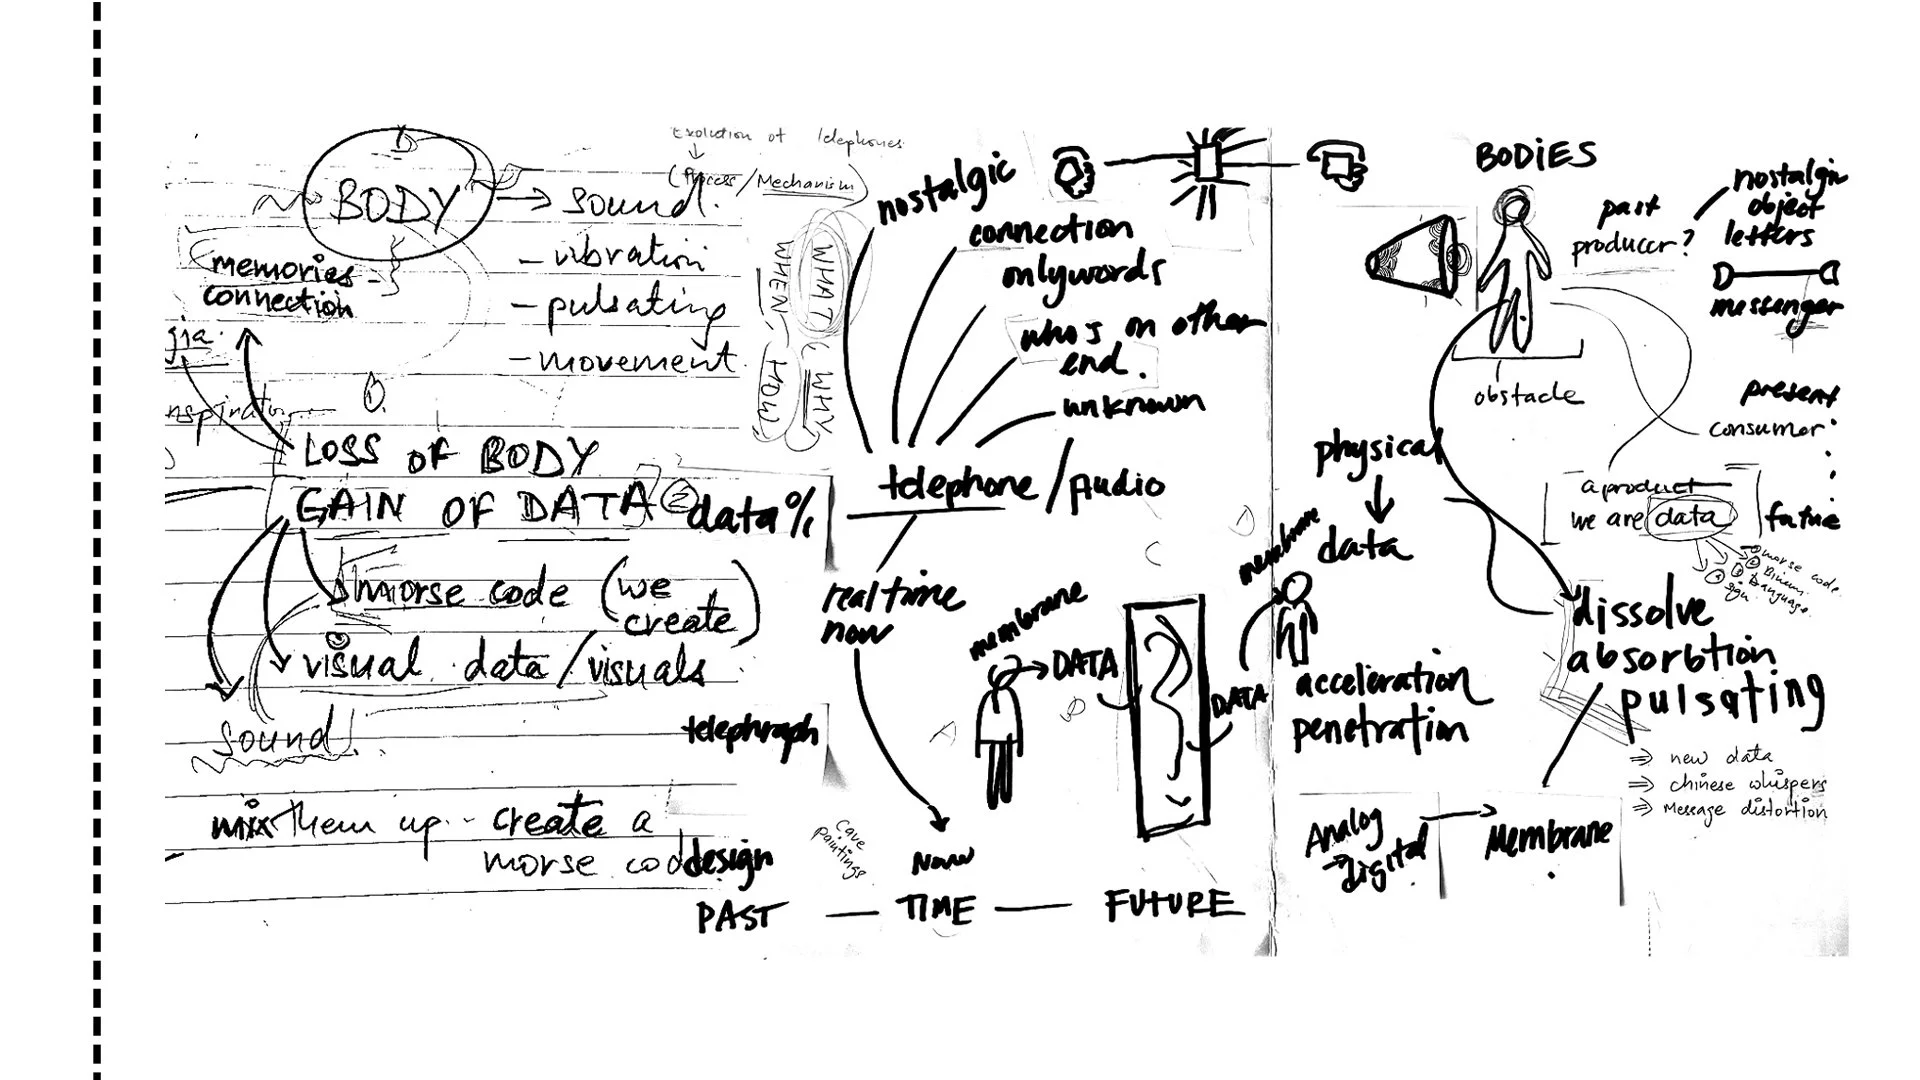 Evolution of telephones
(Process/Mechanism)
BODY
→ sound.
- vibration
- pulsating
- movement
memories
connection
gia.
LOSS OF BODY
GAIN OF DATA
②
data%
morse code (we create)
visual data/visuals
sound
mix them up.. create a
morse cod
telephraph
design
WHAT
WHY
WHEN
HOW
nostalgic
connection
only words
who's on other
end.
unknown
telephone/Audio
real time
now
Now
cave
paintings
PAST — TIME — FUTURE
membrane
DATA
DATA
membrane
acceleration
penetration
physical
data
Analog
→ digital
Membrane
BODiES
obstacle
past
producer?
nostalgic
object
letters
messenger
present
consumer
a product
we are data
future
morse code
language
sign
dissolve
absorbtion
pulsating
⇒ new data
⇒ chinese whispers
⇒ Message distortion